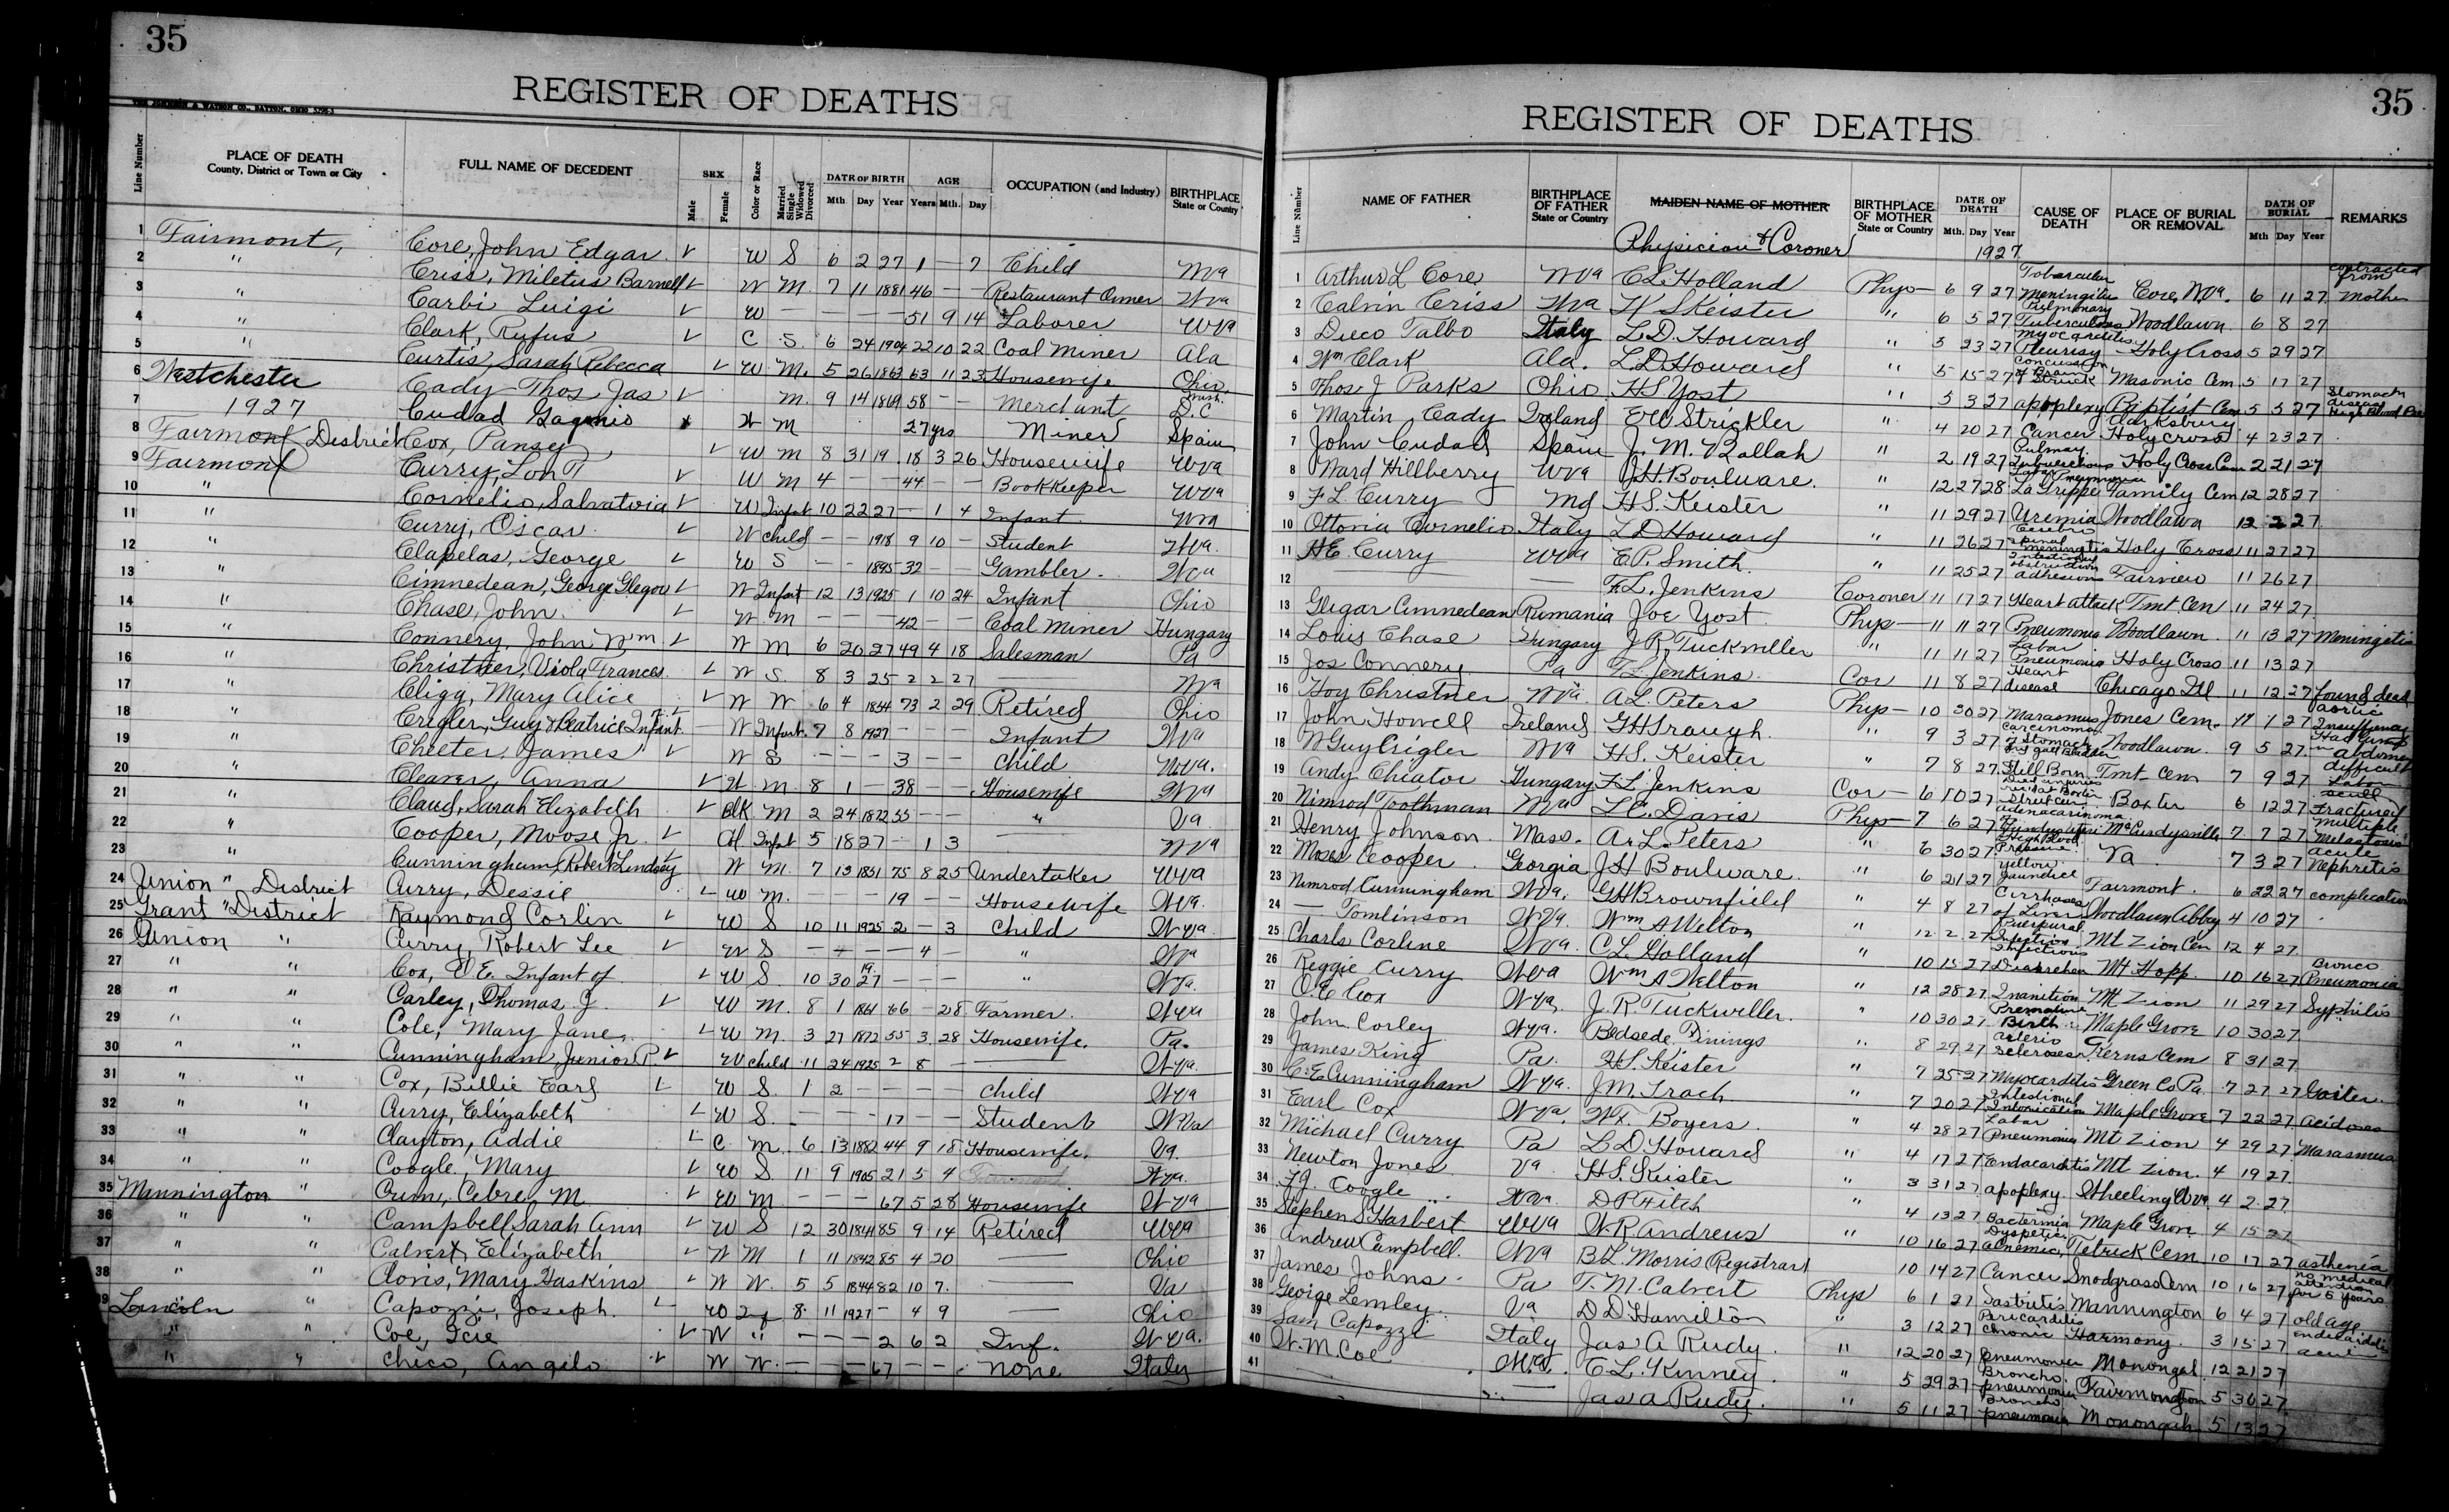 35
REGISTER OF DEATHS
PLACE OF DEATH County, District or Town or City FULL NAME OF DECEDENT SEX Male Female Color or Race Married Single Widowed Divorced DATE OF BIRTH Mth Day Year AGE Years Mth. Day OCCUPATION (and Industry) BIRTHPLACE State or Country
Line Number
1 Fairmont, Core, John Edgar ✓ W S 6 2 27 1 — 7 Child Wva
2 " Criss, Miletus Barnell ✓ W M. 7 11 1881 46 — — Restaurant Owner Wva
3 " Carbi Luigi ✓ W — — — — 51 9 14 Laborer WVa
4 " Clark, Rufus ✓ C S. 6 24 1904 22 10 22 Coal Miner Ala
5 " Curtis, Sarah Rebecca ✓ W. M. 5 26 1863 63 11 23 Housewife Ohio
6 Westchester Cady Thos Jas ✓ M. 9 14 1869 58 — — Merchant Wash. D.C
7 1927 Cudad W M 27 yrs Miner Spain
8 Fairmont District Cox, Pansey ✓ W M 8 31 19 18 3 26 Housewife WVa
9 Fairmont Curry, Lon T ✓ W M 4 — — 44 — — Bookkeeper WVa
10 " Cornelio, Salvatvia ✓ W Infant 10 22 27 — 1 4 Infant WVa
11 " Curry, Oscar ✓ W child — — 1918 9 10 — Student WVa.
12 " Clapelas, George ✓ W S — — 1895 32 — — Gambler. WVa
13 " Cimnedean, George Glegor ✓ W Infant 12 13 1925 1 10 24 Infant Ohio
14 " Chase, John ✓ W M — — — 42 — — Coal Miner Hungary
15 " Connery, John Wm ✓ W M 6 20 27 49 4 18 Salesman Pa
16 " Christner, Viola Frances ✓ W S. 8 3 25 2 2 27 —— WVa
17 " Cligg, Mary Alice ✓ W W 6 4 1854 73 2 29 Retired Ohio
18 " Crigler, Guy & Beatrice Infant — W Infant. 7 8 1927 — — — Infant WVa
19 " Cheeter, James ✓ W S — — — 3 — — Child W.Va.
20 " Cleaver, Anna ✓ W. M. 8 1 — 38 — — Housewife WVa
21 " Claud, Sarah Elizabeth ✓ Blk M 2 24 1872 55 — — " Va
22 " Cooper, Moose Jr. ✓ Col. Infant 5 18 27 — 1 3 —— WVa
23 " Cunningham, Robert Lindsey ✓ W M. 7 13 1851 75 8 25 Undertaker WVa
24 Union " District Curry, Dessie ✓ W M. — — 19 — — Housewife WVa.
25 Grant " District Raymond Corlin ✓ W S 10 11 1925 2 — 3 Child W.Va.
26 Union " Curry, Robert Lee ✓ W S — — — — 4 — " WVa
27 " " Cox, O E. Infant of ✓ W S. 10 30 19 27 — — — " W.Va.
28 " " Carley, Thomas J. ✓ W M. 8 1 1861 66 — 28 Farmer. W.Va
29 " " Cole, Mary Jane, ✓ W M. 3 27 1872 55 3 28 Housewife. Pa.
30 " " Cunningham, Junior P. ✓ W child 11 24 1925 2 8 — —— W.Va.
31 " " Cox, Billie Earl ✓ W S. 1 2 — — — — Child W.Va
32 " " Curry, Elizabeth ✓ W S. — — — 17 — — Student W.Va
33 " " Clayton, Addie ✓ C M. 6 13 1882 44 9 18 Housewife. Va.
34 " " Coogle, Mary ✓ W S. 11 9 1905 21 5 4 W.Va.
35 Mannington " Crim, Cebre, M ✓ W M — — — 67 5 28 Housewife W.Va
36 " " Campbell, Sarah Ann ✓ W S 12 30 1841 85 9 14 Retired WVa
37 " " Calvert, Elizabeth ✓ W M 1 11 1842 85 4 20 —— Ohio
38 " " Clovis, Mary Haskins ✓ W W. 5 5 1844 82 10 7. —— Va
39 Lincoln " Capozzi, Joseph ✓ W 8 11 1927 — 4 9 —— Ohio
" " Coe, Icie ✓ W " — — — 2 6 2 Inf. W.Va.
" " Chico, Angelo ✓ W W. — — — 67 — — None Italy
35
REGISTER OF DEATHS
Line Number NAME OF FATHER BIRTHPLACE OF FATHER State or Country MAIDEN NAME OF MOTHER BIRTHPLACE OF MOTHER State or Country DATE OF DEATH Mth. Day Year CAUSE OF DEATH PLACE OF BURIAL OR REMOVAL DATE OF BURIAL Mth Day Year REMARKS
Physician & Coroner 1927
1 Arthur L Core, WVa C L Holland Phys— 6 9 27 Tobercular Meningitis Core, WVa. 6 11 27 contracted from mother
2 Calvin Criss WVa H S Keister " 6 5 27 Pulmonary Tuberculous Woodlawn 6 8 27
3 Dieco Talbo Italy L. D. Howard " 5 23 27 Myocarditis Pleurisy Holy Cross 5 29 27
4 Wm Clark Ala. L. D Howard " 5 15 27 Concussion of Brain Struck Masonic Cem. 5 17 27
5 Thos J Parks Ohio HS Yost " 5 3 27 apoplexy Baptist Cem 5 5 27 Stomach disease High Blood Pre
6 Martin Cady Ireland E W Strickler " 4 20 27 Cancer Clarksburg Holy Cross 4 23 27
7 John Cudad Spain J. M. Ballah " 2 19 27 Pulmay. Tuberculous Holy Cross Cem 2 21 27
8 Ward Hillberry WVa J H. Boulware. " 12 27 28 Labar Pneumonia La Grippe Family Cem 12 28 27
9 F L. Curry Md H S. Keister " 11 29 27 Uremia Woodlawn 12 2 27
10 Ottovia Cornelio Italy L D Howard " 11 26 27 Cerebro spinal meningitis Holy Cross 11 27 27
11 H E. Curry WVa E. P. Smith. " 11 25 27 Intestional obstruction adhesions Fairview 11 26 27
12 —— F. L. Jenkins Coroner 11 17 27 Heart attack Fmt Cem 11 24 27
13 Gligar Cimnedean Rumania Joe Yost Phys— 11 11 27 Pneumonia Woodlawn. 11 13 27 Meningitis
14 Louis Chase Hungary J R. Tuckwiller " 11 11 27 Labar Pneumonia Holy Cross 11 13 27
15 Jos Connery Pa F L Jenkins Cor 11 8 27 Heart disease Chicago Ill 11 12 27 found dead
16 Hoy Christner WVa A. L. Peters Phys— 10 30 27 Marasmus Jones Cem. 11 1 27 aortic Insuffiency
17 John Howell Ireland G H Traugh. " 9 3 27 Carcinoma of Stomach and gall Bladder Woodlawn 9 5 27 Had lump in abdomen
18 W Guy Crigler WVa H S. Keister " 7 8 27 Still Born Fmt Cem 7 9 27 difficult Labor
19 Andy Chiator Hungary F L. Jenkins Cor— 6 10 27 Baxter 6 12 27 Fractured
20 Nimrod Toothman WVa L E. Davis Phys— 7 6 27 adenacarinoma McCurdysville 7 7 27 multiple Metastosis
21 Henry Johnson Mass. A. L. Peters " 6 30 27 High Blood Pressure Va 7 3 27 acute Nephritis
22 Moses Cooper Georgia J H Boulware. " 6 21 27 Yellow Jaundice Fairmont. 6 22 27 complication
23 Nimrod Cunningham WVa. G H Brownfield " 4 8 27 Cirrhosis of Liver Woodlawn Abby 4 10 27
24 — Tomlinson WVa. Wm A Welton " 12 2 27 Puerpural Infection Mt Zion Cem 12 4 27
25 Charls Corline WVa. C L. Holland " 10 15 27 Infectious Diarrehea Mt Hopp. 10 16 27 Bronco Pneumonia
26 Reggie Curry WVa Wm A Welton " 12 28 27 Inanition Mt Zion 11 29 27 Syphilis
27 O. E Cox W.Va, J. R Tuckwiller. " 10 30 27 Premature Birth Maple Grove 10 30 27
28 John Corley W.Va. Bedsede Pinings " 8 29 27 arterio Scleroses Kerns Cem 8 31 27
29 James King Pa H S. Keister " 7 25 27 Myocarditis Green Co Pa 7 27 27 Goiter
30 C. E Cunningham W.Va. J M. Trach " 7 20 27 Intestional Intoxication Maple Grove 7 22 27 acidoses
31 Earl Cox W.Va. W F. Boyers. " 4 28 27 Labar Pneumonia Mt Zion 4 29 27 Marasmus
32 Michael Curry Pa L D Howard " 4 17 27 Endacarditis Mt Zion. 4 19 27
33 Newton Jones Va H S. Keister " 3 31 27 apoplexy. Wheeling W.Va. 4 2 27
34 F J. Coogle W.Va. D P Fitch " 4 13 27 Bacterimia Maple Grov. 4 15 27
35 Stephen S Harbert WVa W. R. Andrews " 10 16 27 Dyspetic anemic, Tetrick Cem 10 17 27 asthenia
36 Andrew Campbell. WVa B L. Morris Registrar 10 14 27 Cancer Snodgrass Cem 10 16 27 no medical attention for 5 years
37 James Johns Pa T. M. Calvert Phys 6 1 27 Gastritis Mannington 6 4 27 old age
38 George Lemley. Va D D Hamilton " 3 12 27 Pericarditis Chronic Harmony. 3 15 27
39 Sam Capozzi Italy Jas A Rudy. " 12 20 27 pneumonia Monongah 12 21 27
40 W. M. Coe W.Va. C. L. Kinney. " 5 29 27 Broncho. pneumonia 5 30 27
41 —— —— Jas A Rudy. " 5 11 27 Broncho pneumonia Monongah 5 13 27